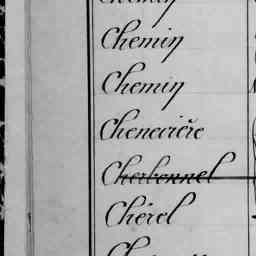 Chemin
Chemin
Chemin
Chenevière
Cherbonnel
Chérel